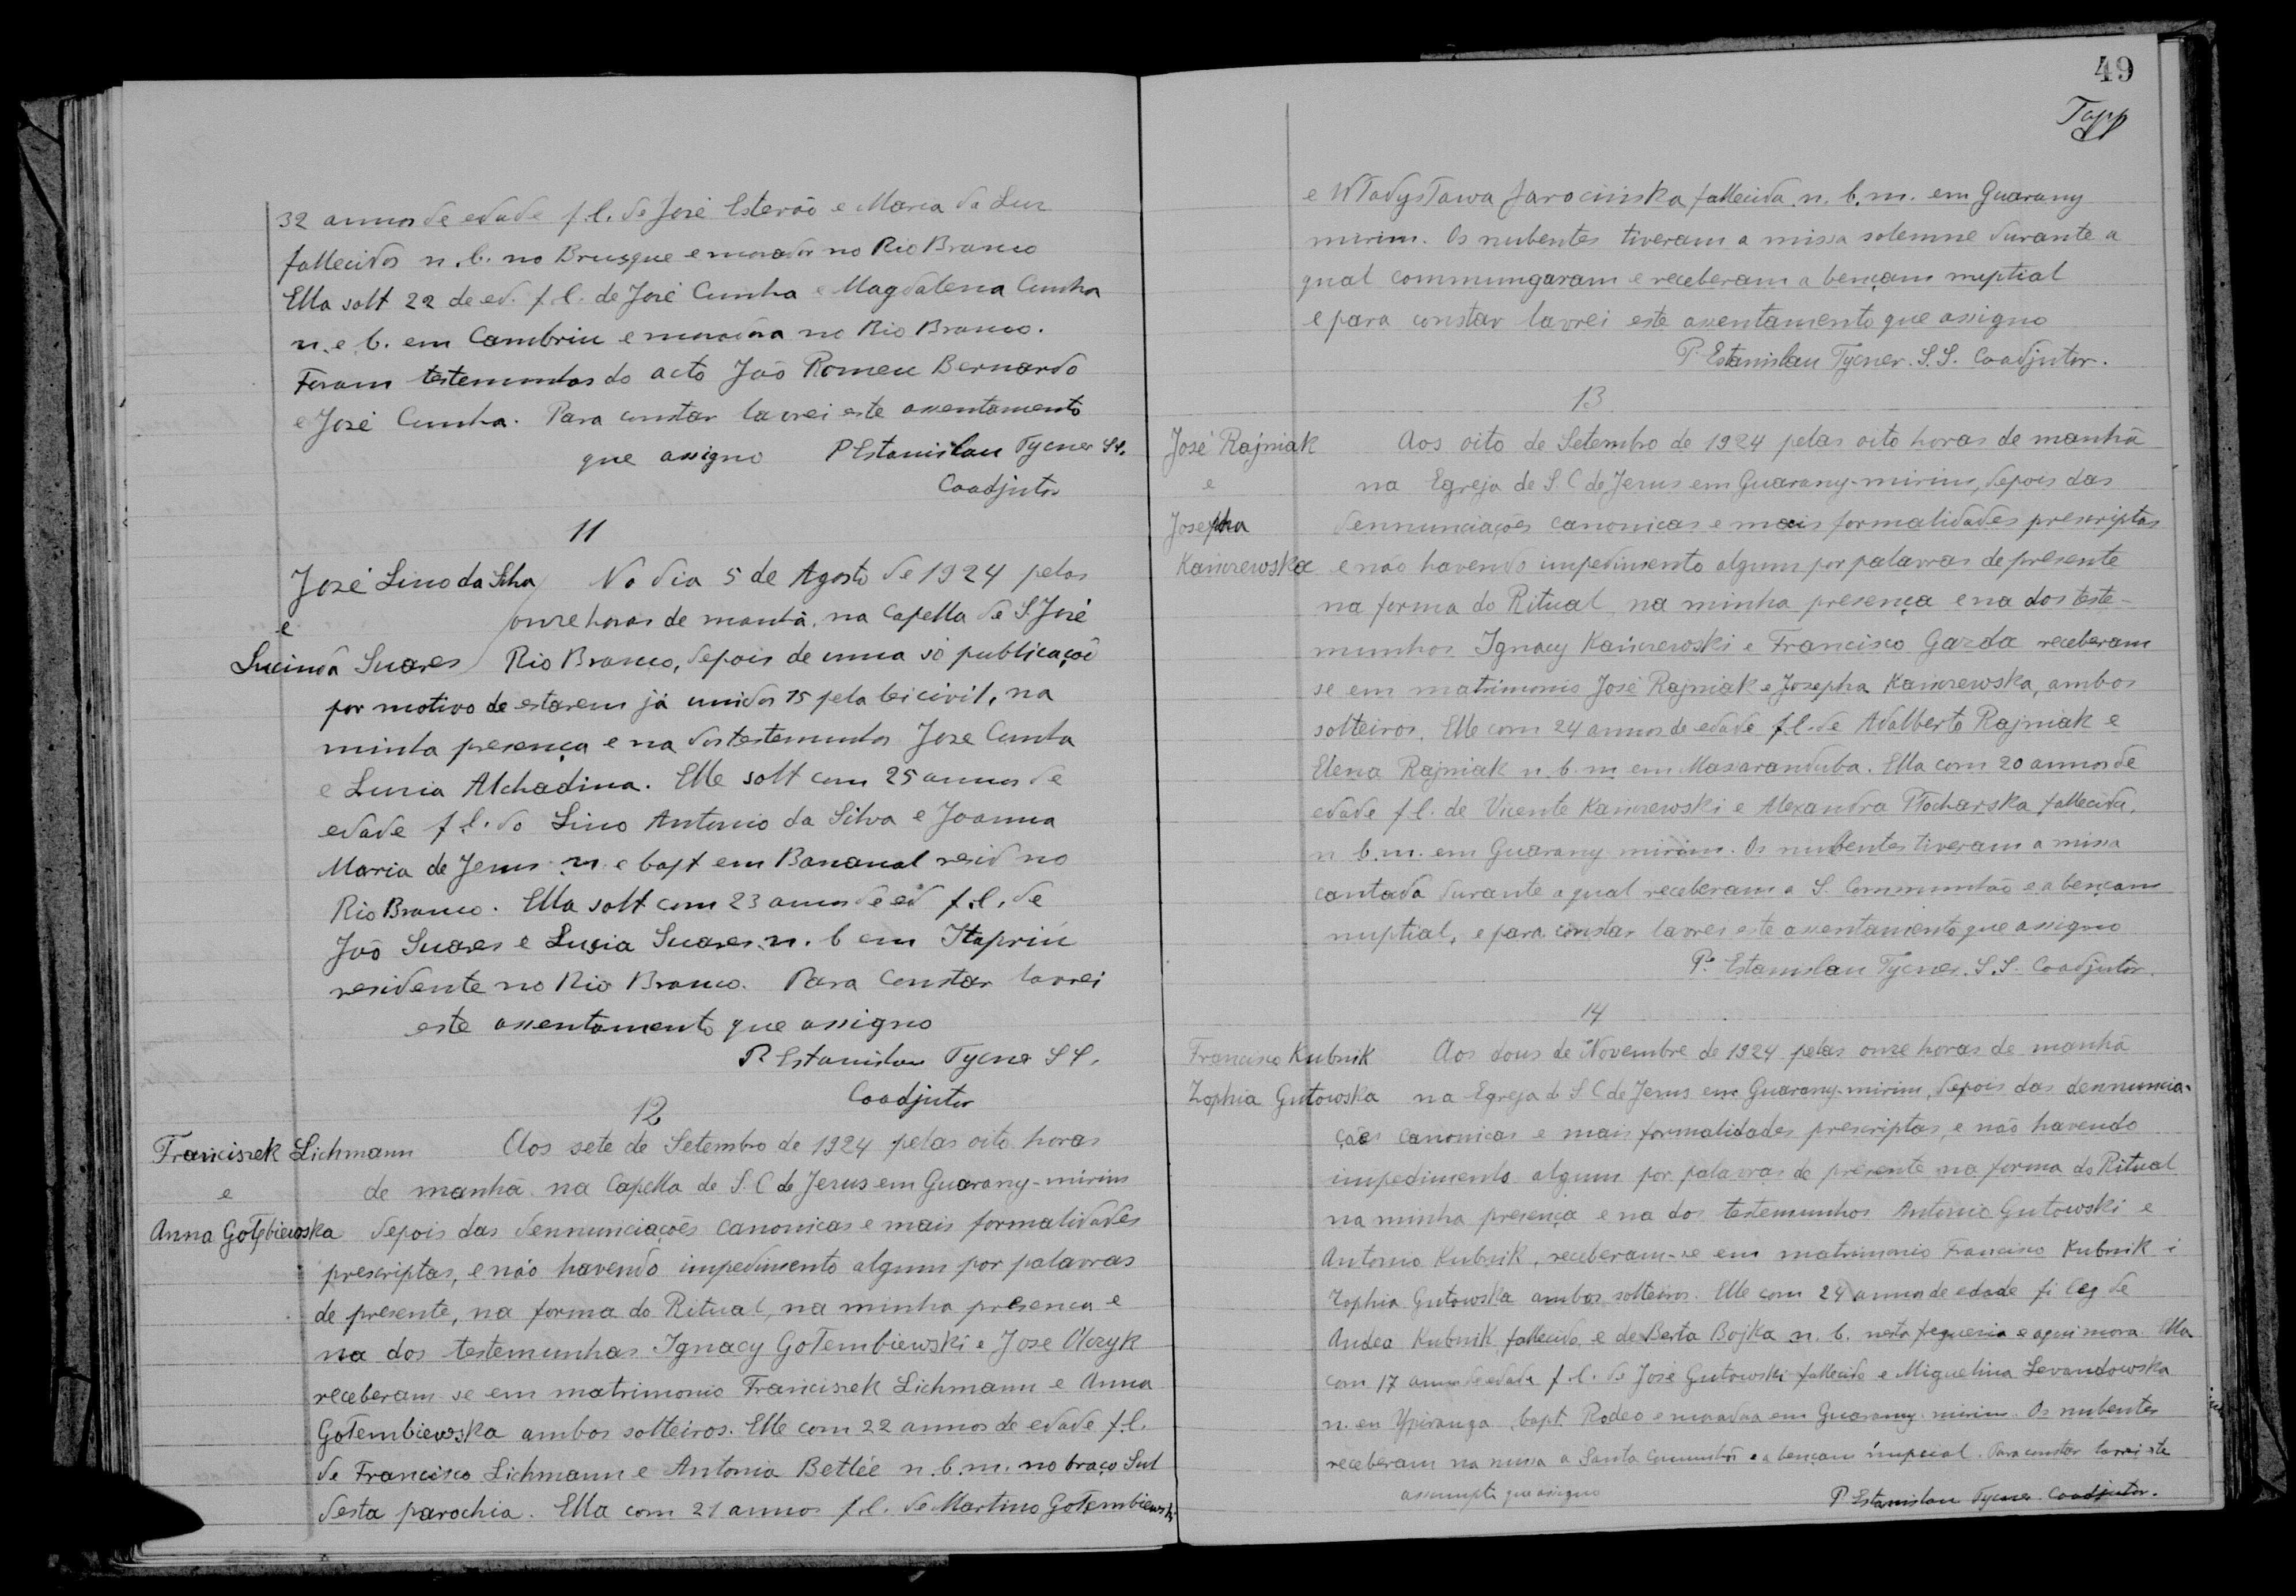 32 annos de edade f.l. de José Estevão e Maria da Luz
fallecidos n.b. no Brusque e morador no Rio Branco
Ella solt 22 de ed. f.l. de José Cunha e Magdalena Cunha
n. e b. em Cambriu e moradora no Rio Branco.
Foram testemunhas do acto João Romeu Bernardo
e José Cunha. Para constar lavrei este assentamento
que assigno P Estanislau Tycner SS.
Coadjutor
11
José Lino da Silva No dia 5 de Agosto de 1924 pelas
e onze horas de manhã, na Capella de S. José
Lucinda Suares Rio Branco, depois de uma só publicação
por motivo de estarem já unidos pela lei civil, na
minha presença e na das testemunhas José Cunha
e Luzia Alchadina. Elle solt com 25 annos de
edade f l. do Lino Antonio da Silva e Joanna
Maria de Jesus n. e bapt em Bananal resid no
Rio Branco. Ella solt com 23 annos de ed f.l. de
João Suares e Luzia Suares n. b em Itapriu
residente no Rio Branco. Para constar lavrei
este assentamento que assigno
P. Estanislau Tycner SS.
Coadjutor
12
Franciszek Lichmann Aos sete de Setembro de 1924 pelas oito horas
e de manhã na Capella de S. C de Jesus em Guarany-mirim
Anna Gołębiewska depois das dennunciações canonicas e mais formalidades
prescriptas, e não havendo impedimento algum por palavras
de presente, na forma do Ritual, na minha presença e
na dos testemunhas Ignacy Gołembiewski e José Olczyk
receberam-se em matrimonio Franciszek Lichmann e Anna
Gołembiewska ambos solteiros. Elle com 22 annos de edade f.l.
de Francisco Lichmann e Antonia Betlée n.b.m. no braço Sul
desta parochia. Ella com 21 annos f.l. de Martino Gołembiewski
49
Tapp
e Władysława Jarocińska fallecida n. b. m. em Guarany
mirim. Os nubentes tiveram a missa solemne durante a
qual commungaram e receberam a bençam nuptial
e para constar lavrei este assentamento que assigno
P. Estanislau Tycner. S.S. Coadjutor.
13
José Rajniak Aos oito de Setembro de 1924 pelas oito horas de manhã
e na Egreja de S. C de Jesus em Guarany-mirim, depois das
Josepha dennunciações canonicas e mais formalidades prescriptas
Kamrewska e não havendo impedimento algum por palavras de presente
na forma do Ritual na minha presença e na dos teste-
munhos Ignacy Kamrewski e Francisco Gazda receberam
se em matrimonio José Rajniak e Josepha Kamrewska, ambos
solteiros. Elle com 24 annos de edade f.l. de Adalberto Rajniak e
Elena Rajniak n. b. m em Massaranduba. Ella com 20 annos de
edade f l. de Vicente Kamrewski e Alexandra Płocharska fallecida.
n. b. m. em Guarany mirim. Os nubentes tiveram a missa
cantada durante a qual receberam a S. Communhão e a bençam
nuptial, e para constar lavrei este assentamento que assigno
P. Estanislau Tycner. S.S. Coadjutor.
14
Francisco Kubnik Aos dous de Novembre de 1924 pelas onze horas de manhã
Zophia Gutowska na Egreja d S C de Jesus em Guarany-mirim, depois das dennuncia-
ções canonicas e mais formalidades prescriptas, e não havendo
impedimento algum por palavras de presente na forma do Ritual
na minha presença e na dos testemunhos Antonio Gutowski e
Antonio Kubnik, receberam-se em matrimonio Francisco Kubnik i
Zophia Gutowska ambos solteiros. Elle com 24 annos de edade fi leg de
Andea Kubnik fallecido e de Berta Bojka n. b. nesta fregueria e aqui mora Ella
com 17 annos de edade f.l. de José Gutowski fallecido e Miguelina Levandowska
n. en Ypiranga, bapt. Rodeo e moradora em Guarany mirim. Os nubentes
receberam na missa a Santa Communhõ e a bençam. Para constar lavrei ste
que assigno P Estanislau Tycner Coadjutor.